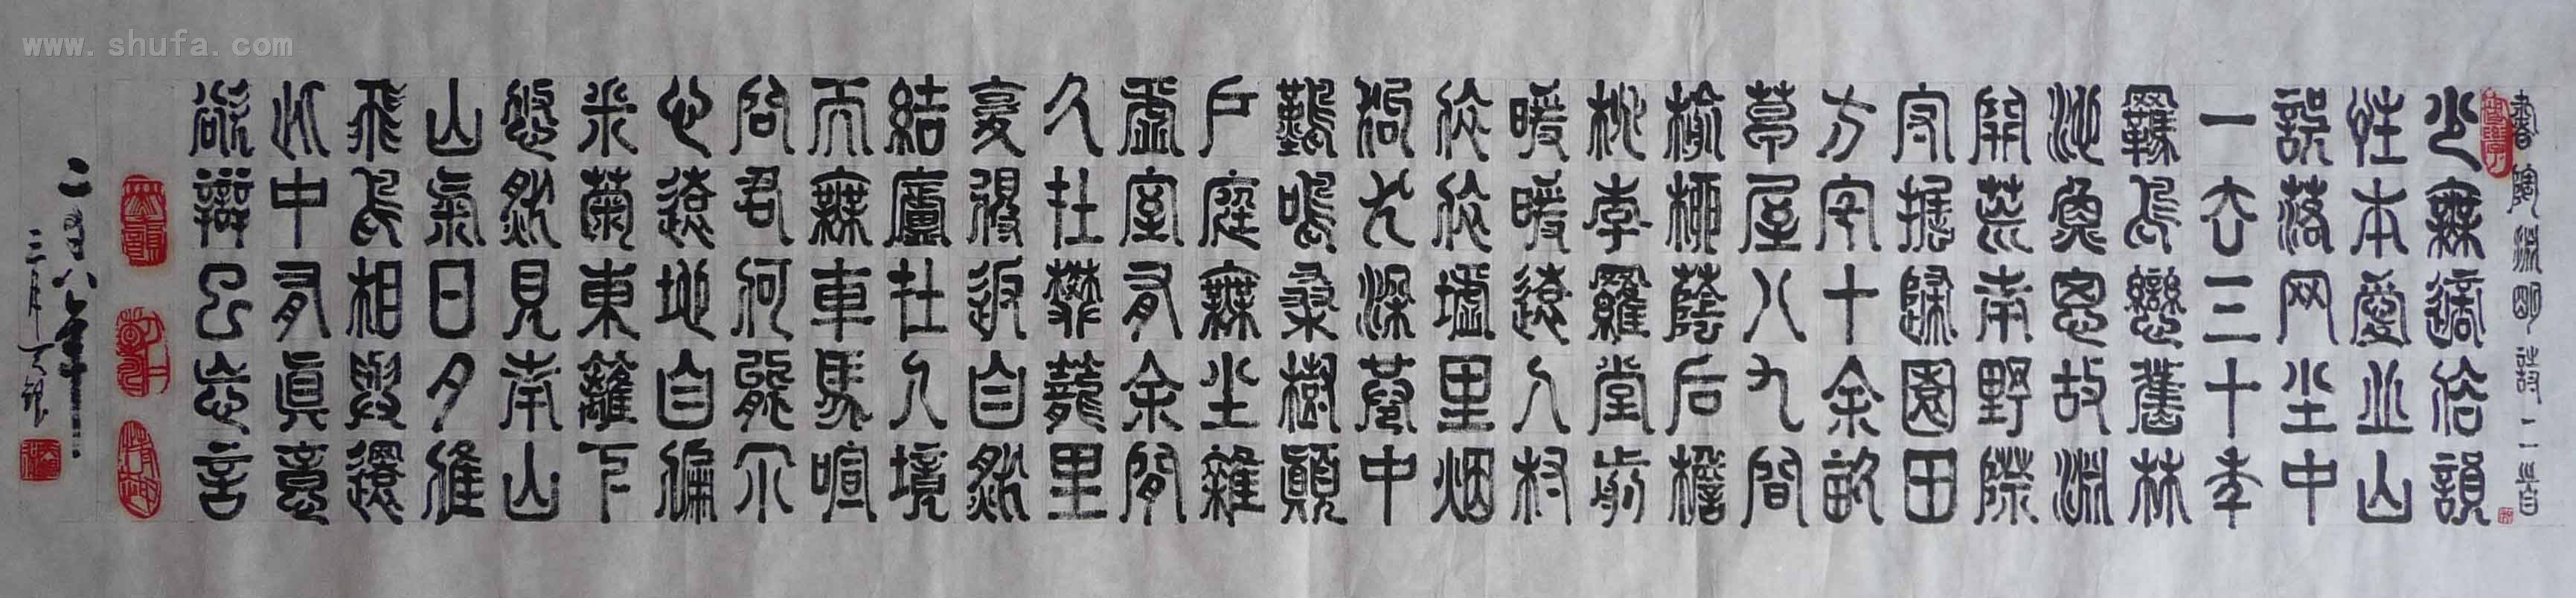 www.shufa.com
書陶淵明詩二首
少無適俗韻
性本愛丘山
誤落网尘中
一去三十年
羈鳥戀舊林
池魚思故淵
開荒南野際
守拙歸園田
方宅十余畝
草屋八九間
榆柳蔭后檐
桃李羅堂前
暖暖遠人村
依依墟里烟
狗吠深巷中
鷄鳴桑樹顛
户庭無尘雜
虛室有余閒
久在樊籠里
復得返自然
結廬在人境
而無車馬喧
問君何能尔
心遠地自偏
采菊東籬下
悠然見南山
山氣日夕佳
飛鳥相與還
此中有真意
欲辯已忘言
二〇〇八年
三月